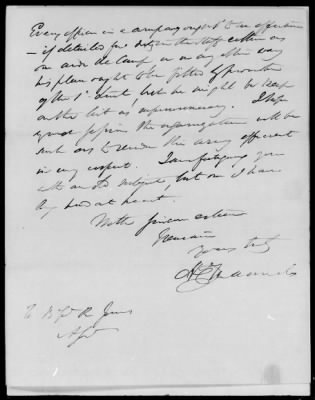 Every officer in a company ought to be efficient
– if detailed for duty in the staff either as
an aide de camp or in any other way
his place ought to be filled by promotion
of the 1st but he might be kept
on the list as supernumerary. I hope
good the reorganization will be
such as to render the army efficient
in any respect. I am fatiguing you
with an old subject, but one I have
long had at heart,
With sincere esteem
I remain
yours truly
To B. Gl. R. Jones